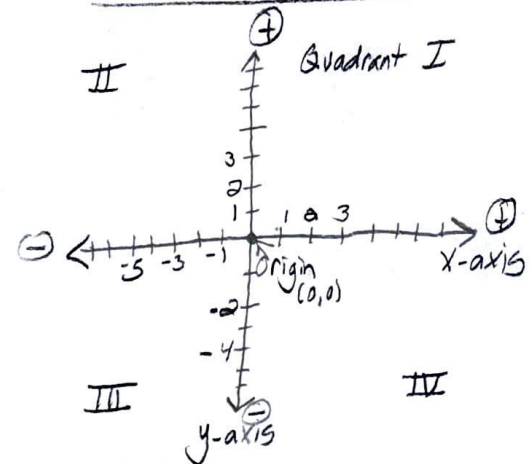 +
II
Quadrant I
3
2
1
1 2 3
-
+
-5 -3 -1
Origin
(0,0)
x-axis
-2
-4
III
IV
-
y-axis